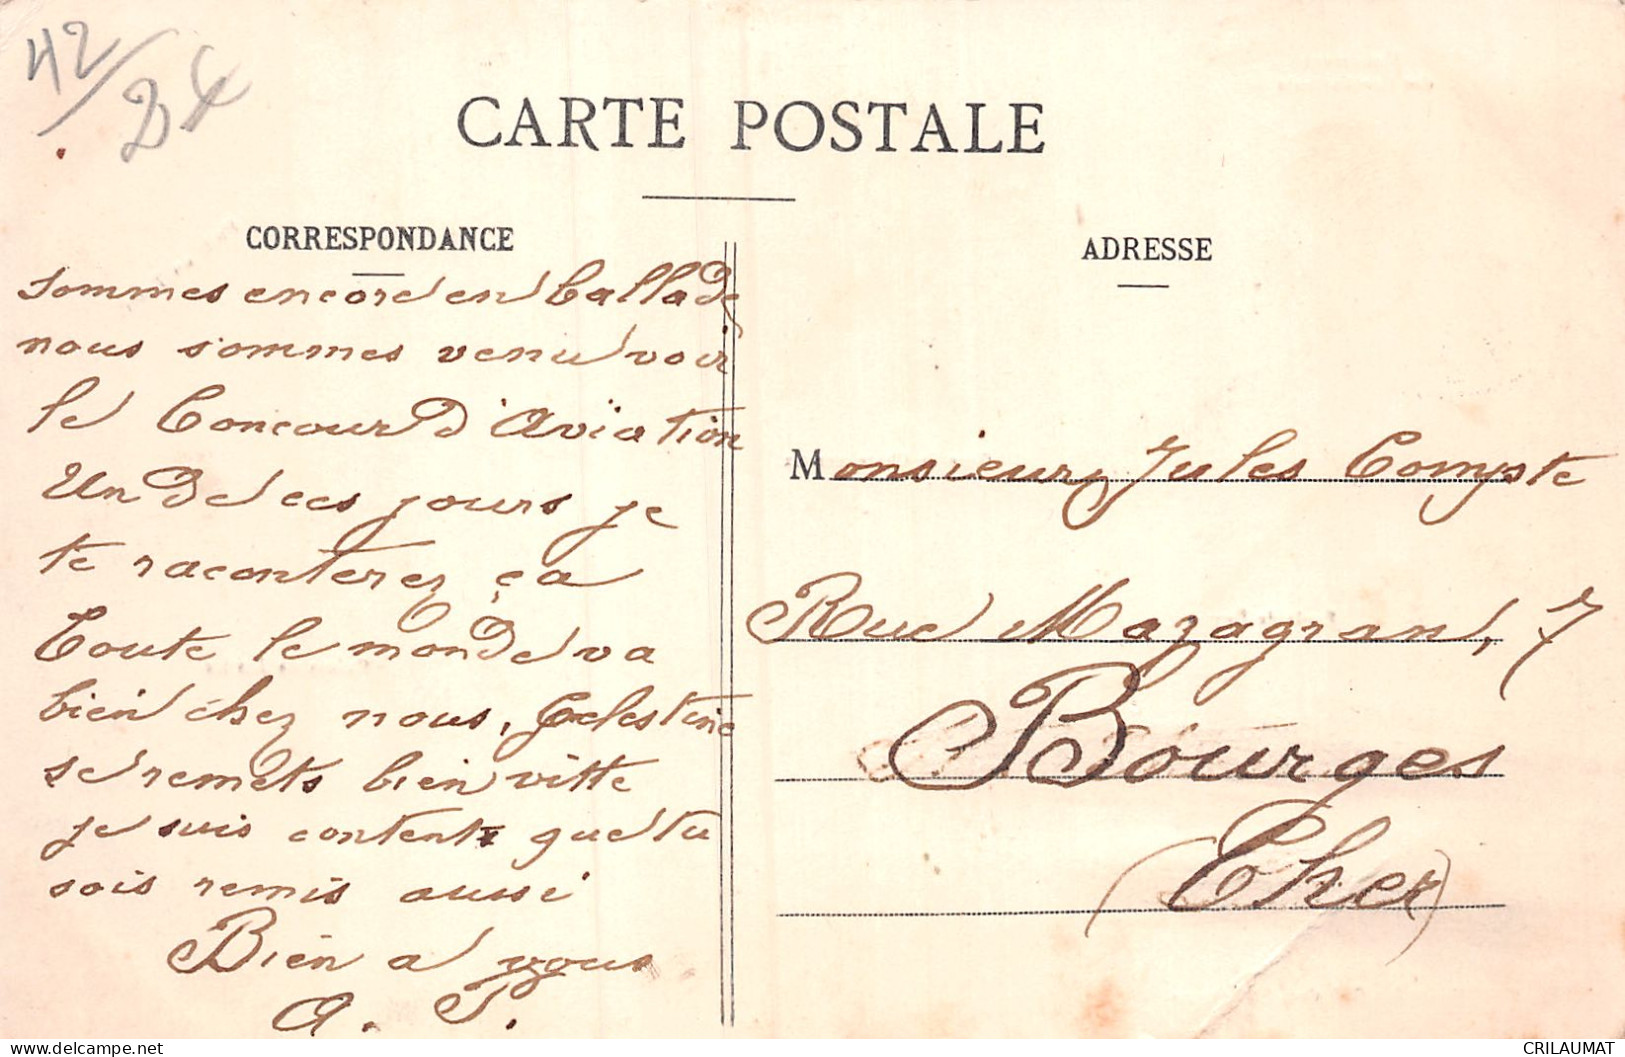 42/24
CARTE POSTALE
CORRESPONDANCE
sommes encore en ballade
nous sommes venu voir
le Concour d'Aviation
Un de ces jours je
te raconterez ça
Toute le monde va
bien chez nous, Celestine
se remets bien vitte
je suis content que tu
sois remis aussi
Bien a vous
A. T.
ADRESSE
Monsieur Jules Compte
Rue Mazagran, 7
Bourges
(Cher)
www.delcampe.net
CRILAUMAT